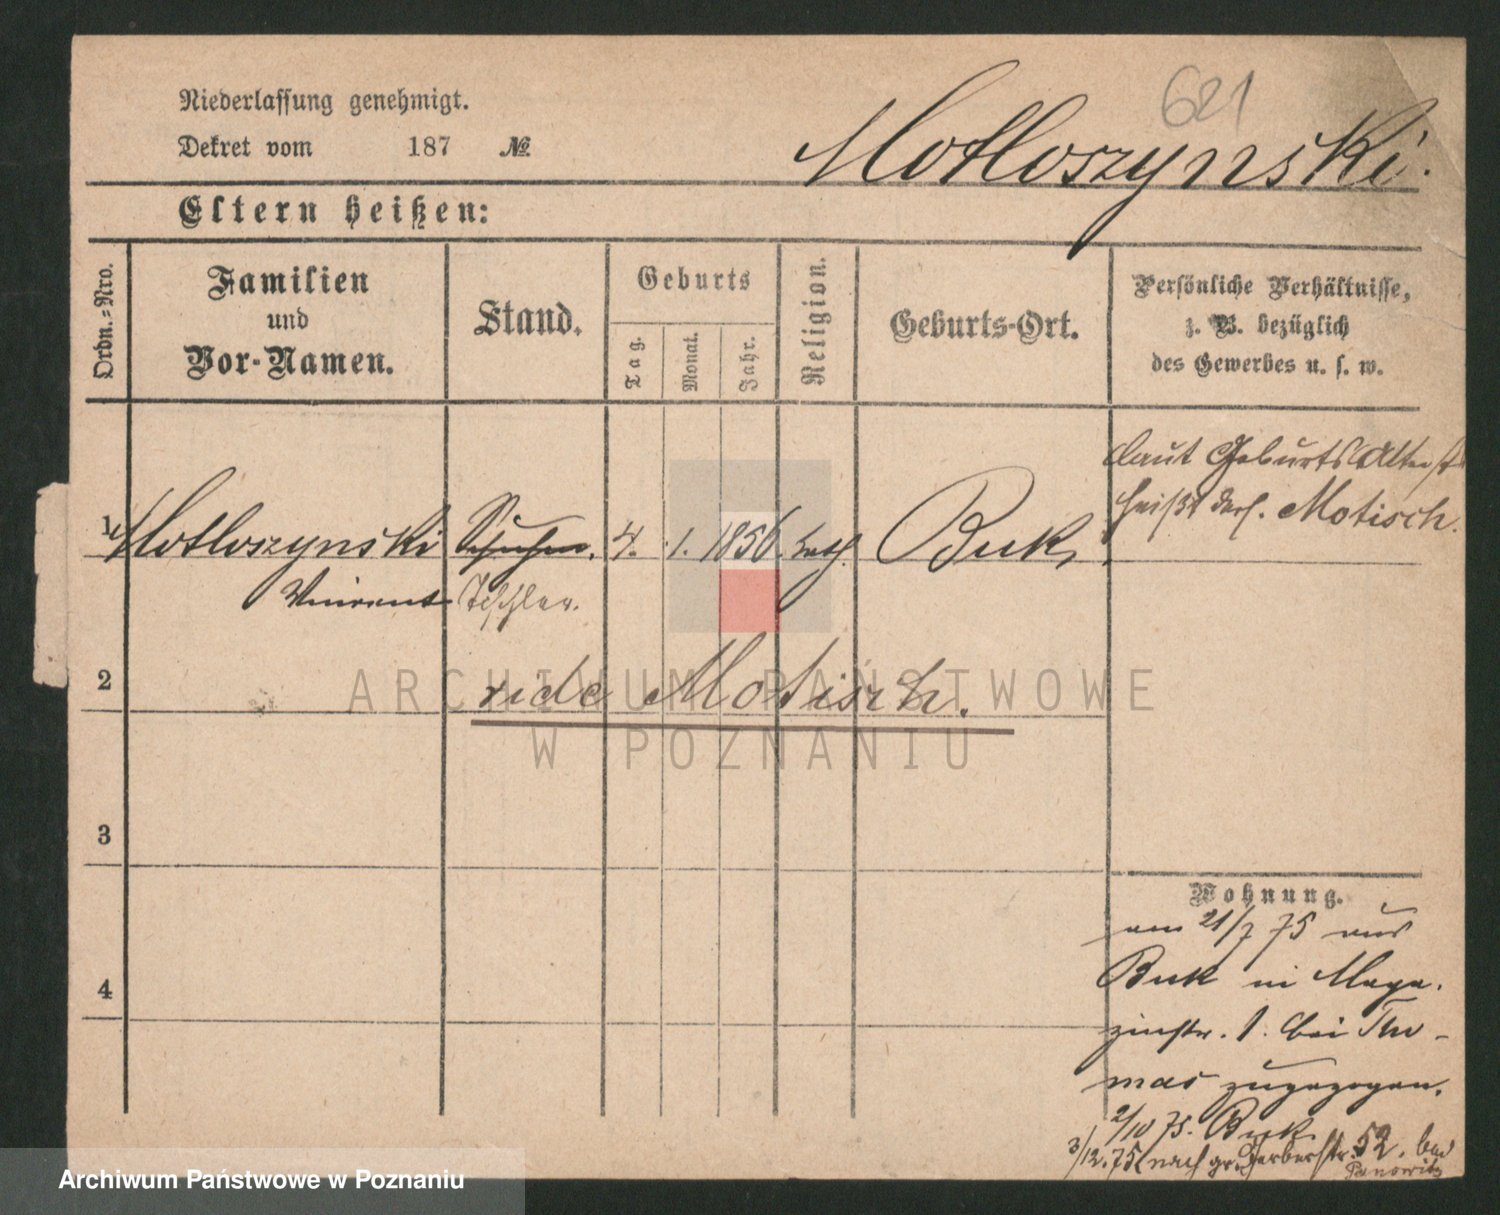 621
Niederlassung genehmigt.
Dekret vom 187 №
Motloszynski.
Eltern heißen:
Ordn.=Nro.
Familien
und
Vor-Namen.
Stand.
Geburts
Tag.
Monat.
Jahr.
Religion.
Geburts-Ort.
Persönliche Verhältnisse,
z. B. bezüglich
des Gewerbes u. s. w.
laut Geburts Attest
heißt ders. Motisch.
1 Motloszynski Schuhm. 4. 1. 1856 kath. Buk
Vincent Tischler.
2
vide Motisch.
ARCHIWUM PAŃSTWOWE
W POZNANIU
3
4
Wohnung.
am 21/7 75 aus
Buk in Maga-
zinstr. 1. bei Tho-
mas zugezogen.
2/10 75. Buk
3/12.75 nach gr. Gerberstr. 52. bei
Panowitz
Archiwum Państwowe w Poznaniu